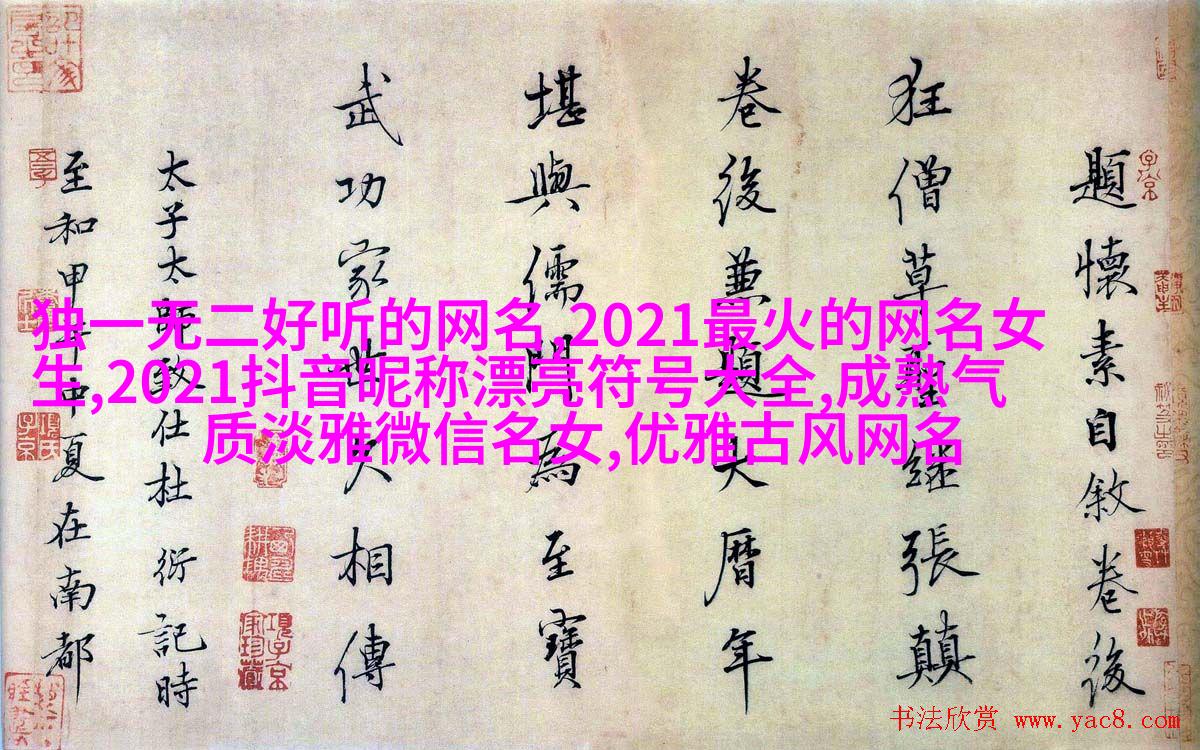 題懷素自敘卷後
狂僧草聖繼張顛
卷後兼題大曆年
堪與儒門爲至寶
武功家世久相傳
太子太師致仕杜 衍記時
至和甲午中夏在南都
独一无二好听的网名,2021最火的网名女
生,2021抖音昵称漂亮符号大全,成熟气
质淡雅微信名女,优雅古风网名
书法欣赏 www.yac8.com